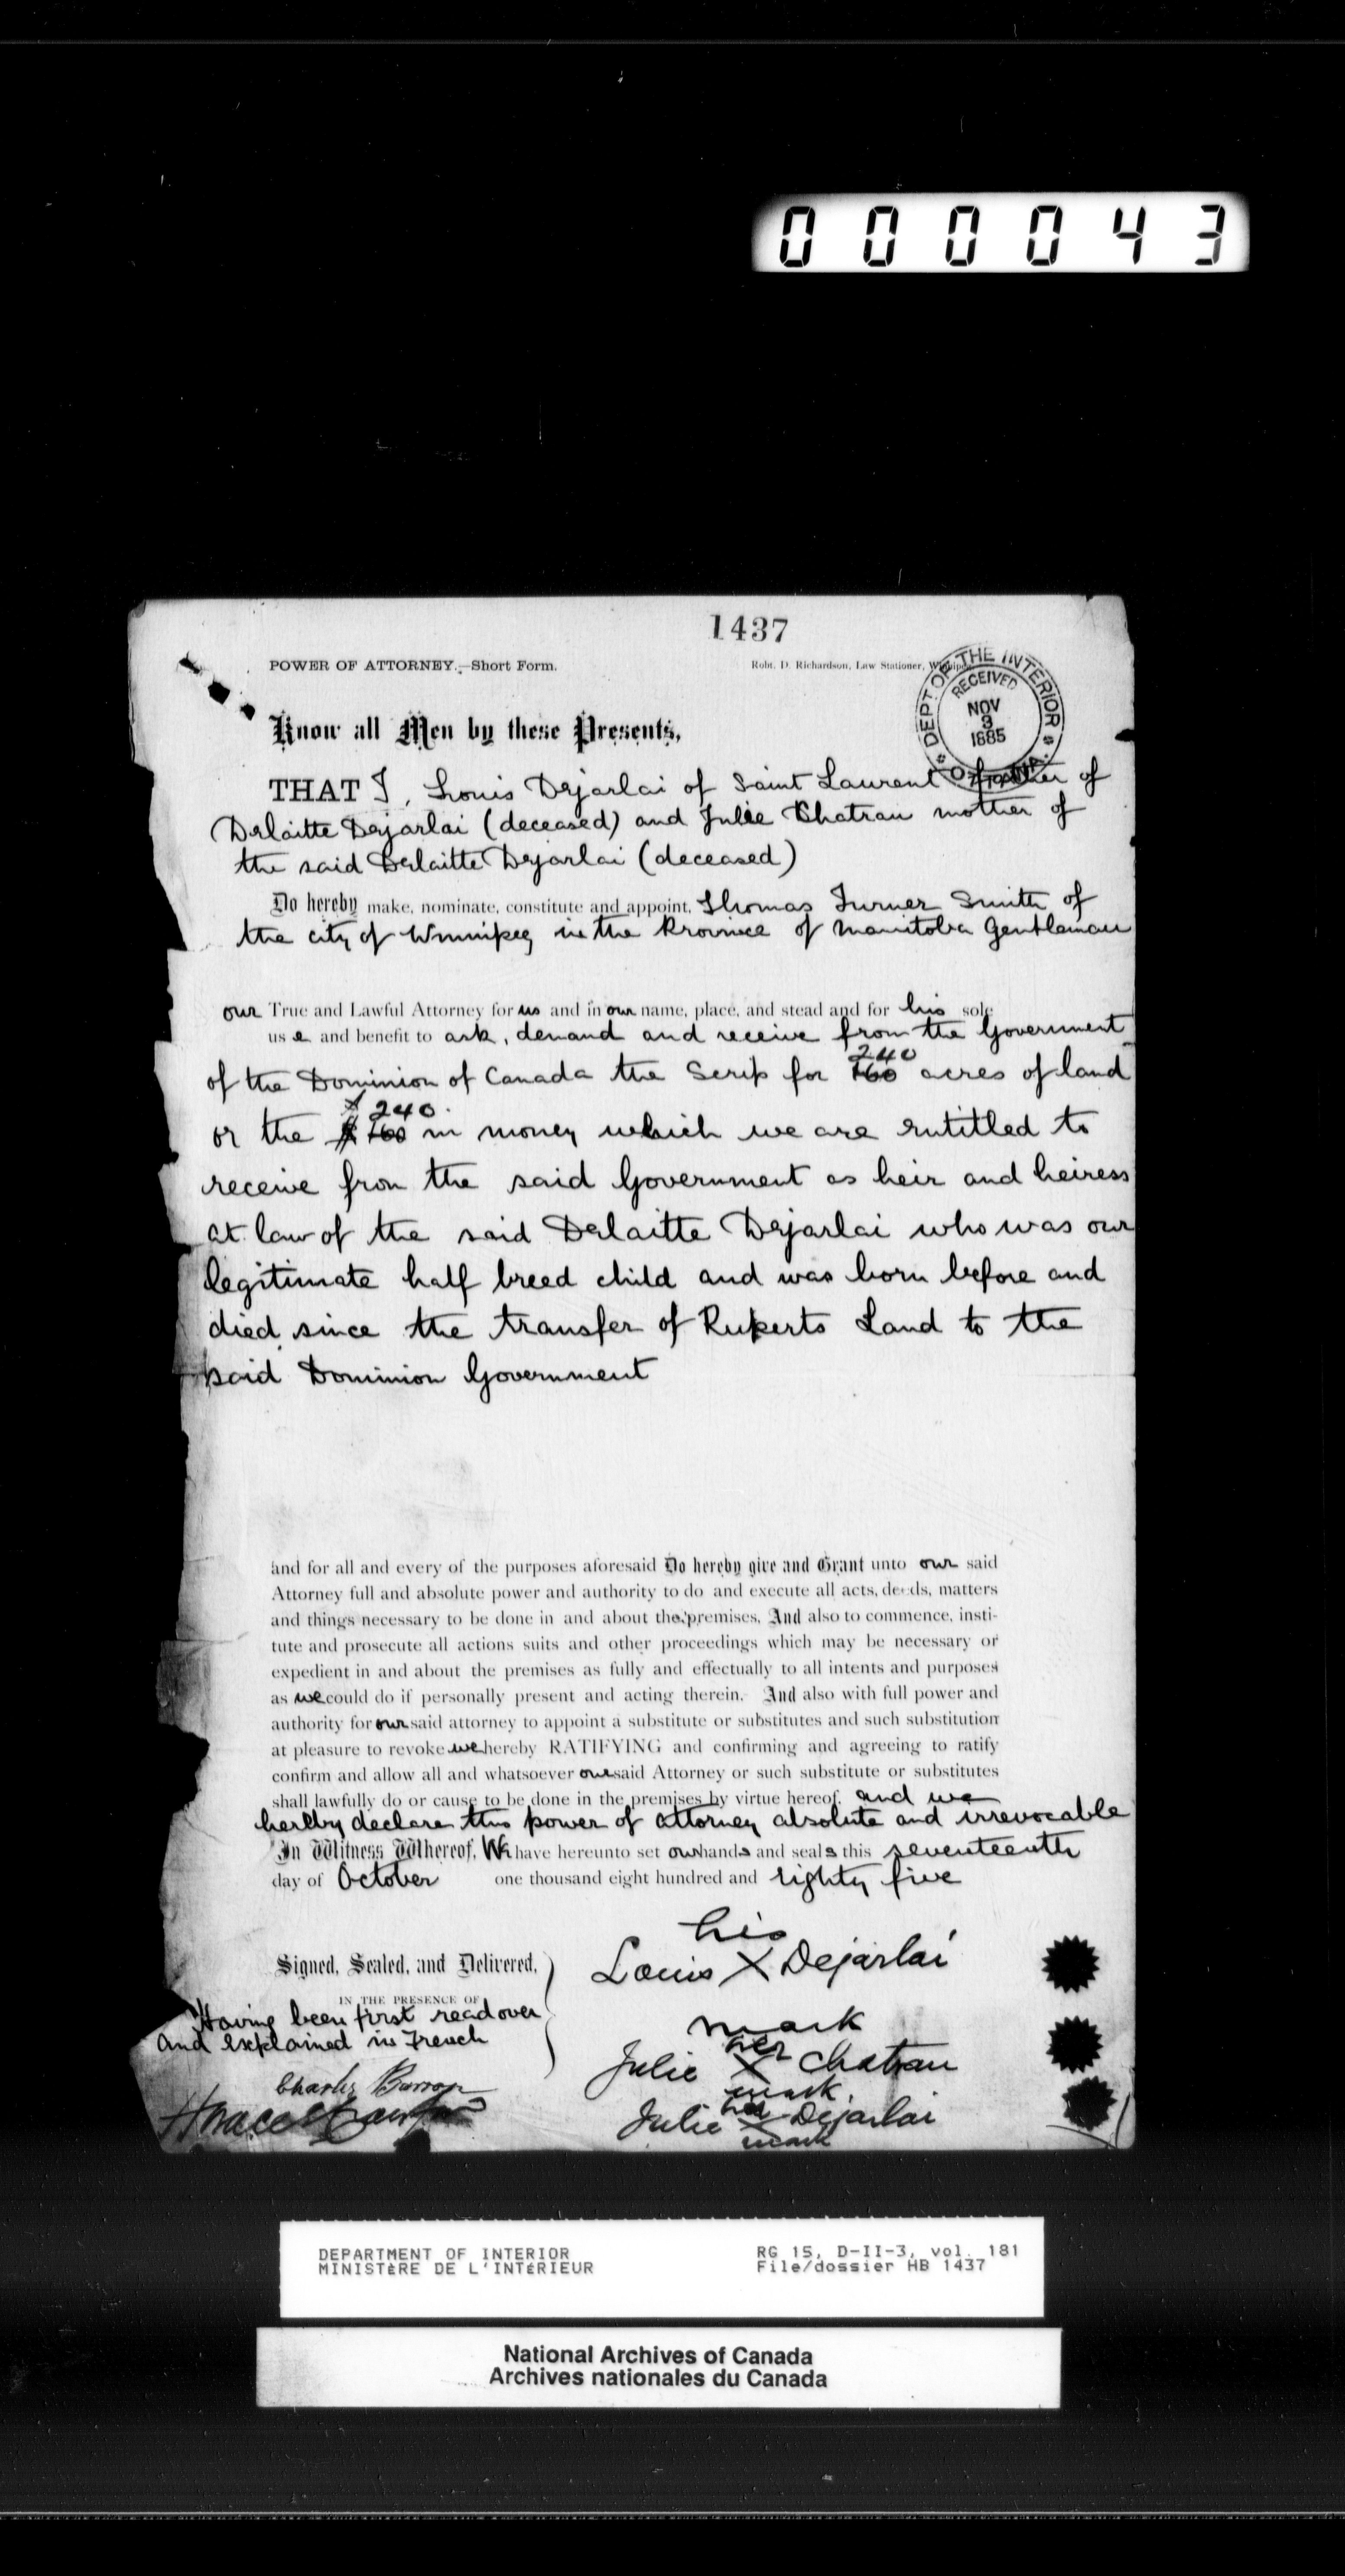 000043
1437
POWER OF ATTORNEY.—Short Form.
Robt. D. Richardson, Law Stationer, Winnipeg
DEPT OF THE INTERIOR
RECEIVED
NOV
3
1885
OTTAWA
Know all Men by these Presents,
THAT I, Louis Dejarlai of Saint Laurent father of
Delaitte Dejarlai (deceased) and Julie Chatrau mother of
the said Delaitte Dejarlai (deceased)
Do hereby make, nominate, constitute and appoint, Thomas Turner Smith of
the city of Winnipeg in the Province of Manitoba Gentleman
our True and Lawful Attorney for us and in our name, place, and stead and for his sole
use and benefit to ask, demand and receive from the Government
240
of the Dominion of Canada the Scrip for 160 acres of land
240
or the $ 160 in money which we are entitled to
receive fron the said Government as heir and heiress
at law of the said Delaitte Dejarlai who was our
legitimate half breed child and was born before and
died since the transfer of Ruperts Land to the
said Dominion Government
and for all and every of the purposes aforesaid Do hereby give and Grant unto our said
Attorney full and absolute power and authority to do and execute all acts, deeds, matters
and things necessary to be done in and about the premises, And also to commence, insti-
tute and prosecute all actions suits and other proceedings which may be necessary or
expedient in and about the premises as fully and effectually to all intents and purposes
as we could do if personally present and acting therein. And also with full power and
authority for our said attorney to appoint a substitute or substitutes and such substitution
at pleasure to revoke we hereby RATIFYING and confirming and agreeing to ratify
confirm and allow all and whatsoever our said Attorney or such substitute or substitutes
shall lawfully do or cause to be done in the premises by virtue hereof. and we
hereby declare this power of attorney absolute and irrevocable
In Witness Whereof, We have hereunto set our hands and seals this seventeenth
day of October one thousand eight hundred and eighty five
Signed, Sealed, and Delivered,
IN THE PRESENCE OF
Having been first read over
and explained in French
Charles
his
Louis X Dejarlai
mark
her
Julie X Chatrau
mark.
her
Julie X Dejarlai
mark
DEPARTMENT OF INTERIOR
MINISTÈRE DE L'INTÉRIEUR
RG 15, D-II-3, vol. 181
File/dossier HB 1437
National Archives of Canada
Archives nationales du Canada